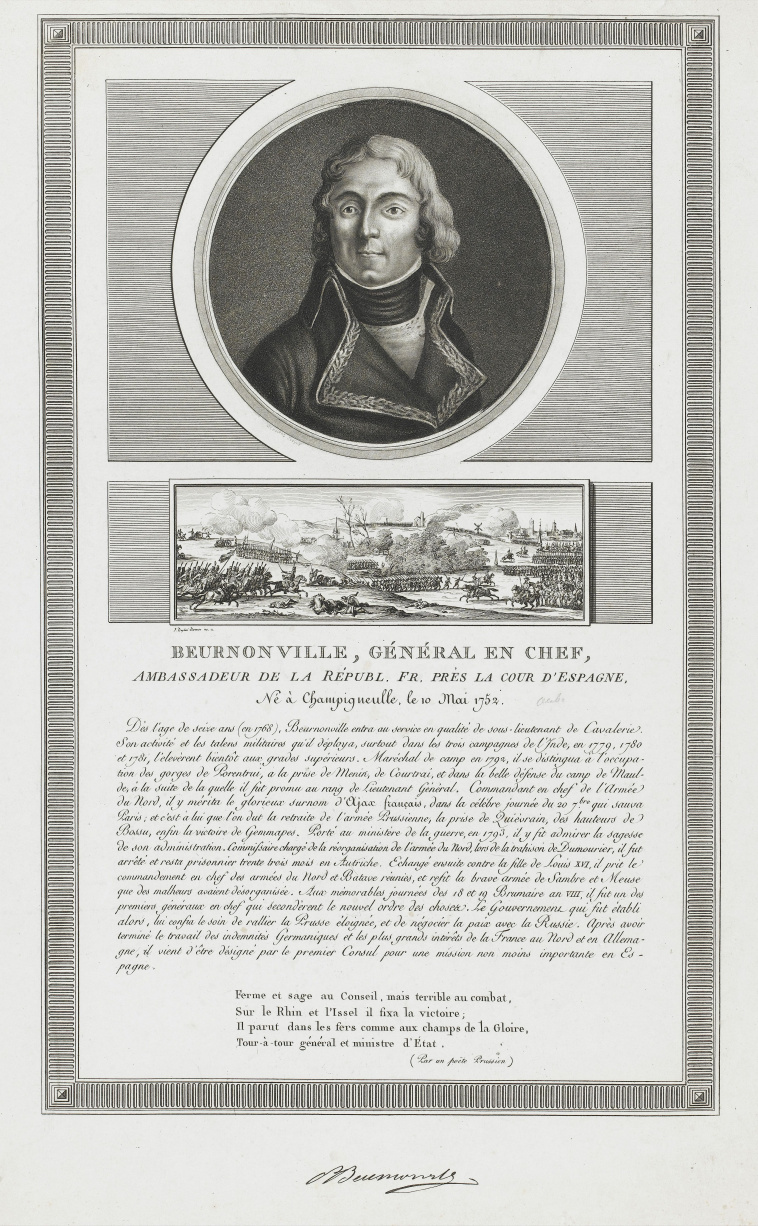 BEURNONVILLE, GÉNÉRAL EN CHEF,
AMBASSADEUR DE LA RÉPUBL. FR. PRÈS LA COUR D'ESPAGNE,
Né à Champigneulle, le 10 Mai 1752.
Dès l'age de seize ans (en 1768), Beurnonville entra au service en qualité de sous-lieutenant de Cavalerie.
Son activité et les talens militaires qu'il déploya, surtout dans les trois campagnes de l'Inde, en 1779, 1780
et 1781, l'elevèrent bientôt aux grades supérieurs. Maréchal de camp en 1792, il se distingua à l'occupa-
tion des gorges de Porentrui, a la prise de Menin, de Courtrai, et dans la belle défense du camp de Maul-
de, à la suite de la quelle il fut promu au rang de Lieutenant Général. Commandant en chef de l'Armée
du Nord, il y mérita le glorieux surnom d'Ajax français, dans la célèbre journée du 20 7.bre qui sauva
Paris; et c'est à lui que l'on dut la retraite de l'armée Prussienne, la prise de Quiévrain, des hauteurs de
Bossu, enfin la victoire de Gémmapes. Porté au ministère de la guerre, en 1793, il y fit admirer la sagesse
de son administration. Commissaire chargé de la réorganisation de l'armée du Nord, lors de la trahison de Dumourier, il fut
arrêté et resta prisonnier trente trois mois en Autriche. Echangé ensuite contre la fille de Louis XVI, il prit le
commandement en chef des armées du Nord et Batave réunies, et refit la brave armée de Sambre et Meuse
que des malheurs avaient désorganisée. Aux mémorables journées des 18 et 19 Brumaire an VIII, il fut un des
premiers généraux en chef qui secondèrent le nouvel ordre des choses. Le Gouvernement qui fut établi
alors, lui confia le soin de rallier la Prusse éloignée, et de négocier la paix avec la Russie. Après avoir
terminé le travail des indemnités Germaniques et les plus grands intérêts de la France au Nord et en Allema-
gne, il vient d'être désigné par le premier Consul pour une mission non moins importante en Es-
pagne.
Ferme et sage au Conseil, mais terrible au combat,
Sur le Rhin et l'Issel il fixa la victoire;
Il parut dans les fers comme aux champs de la Gloire,
Tour-à-tour général et ministre d'État.
(Par un poète Prussien)
Beurnonville